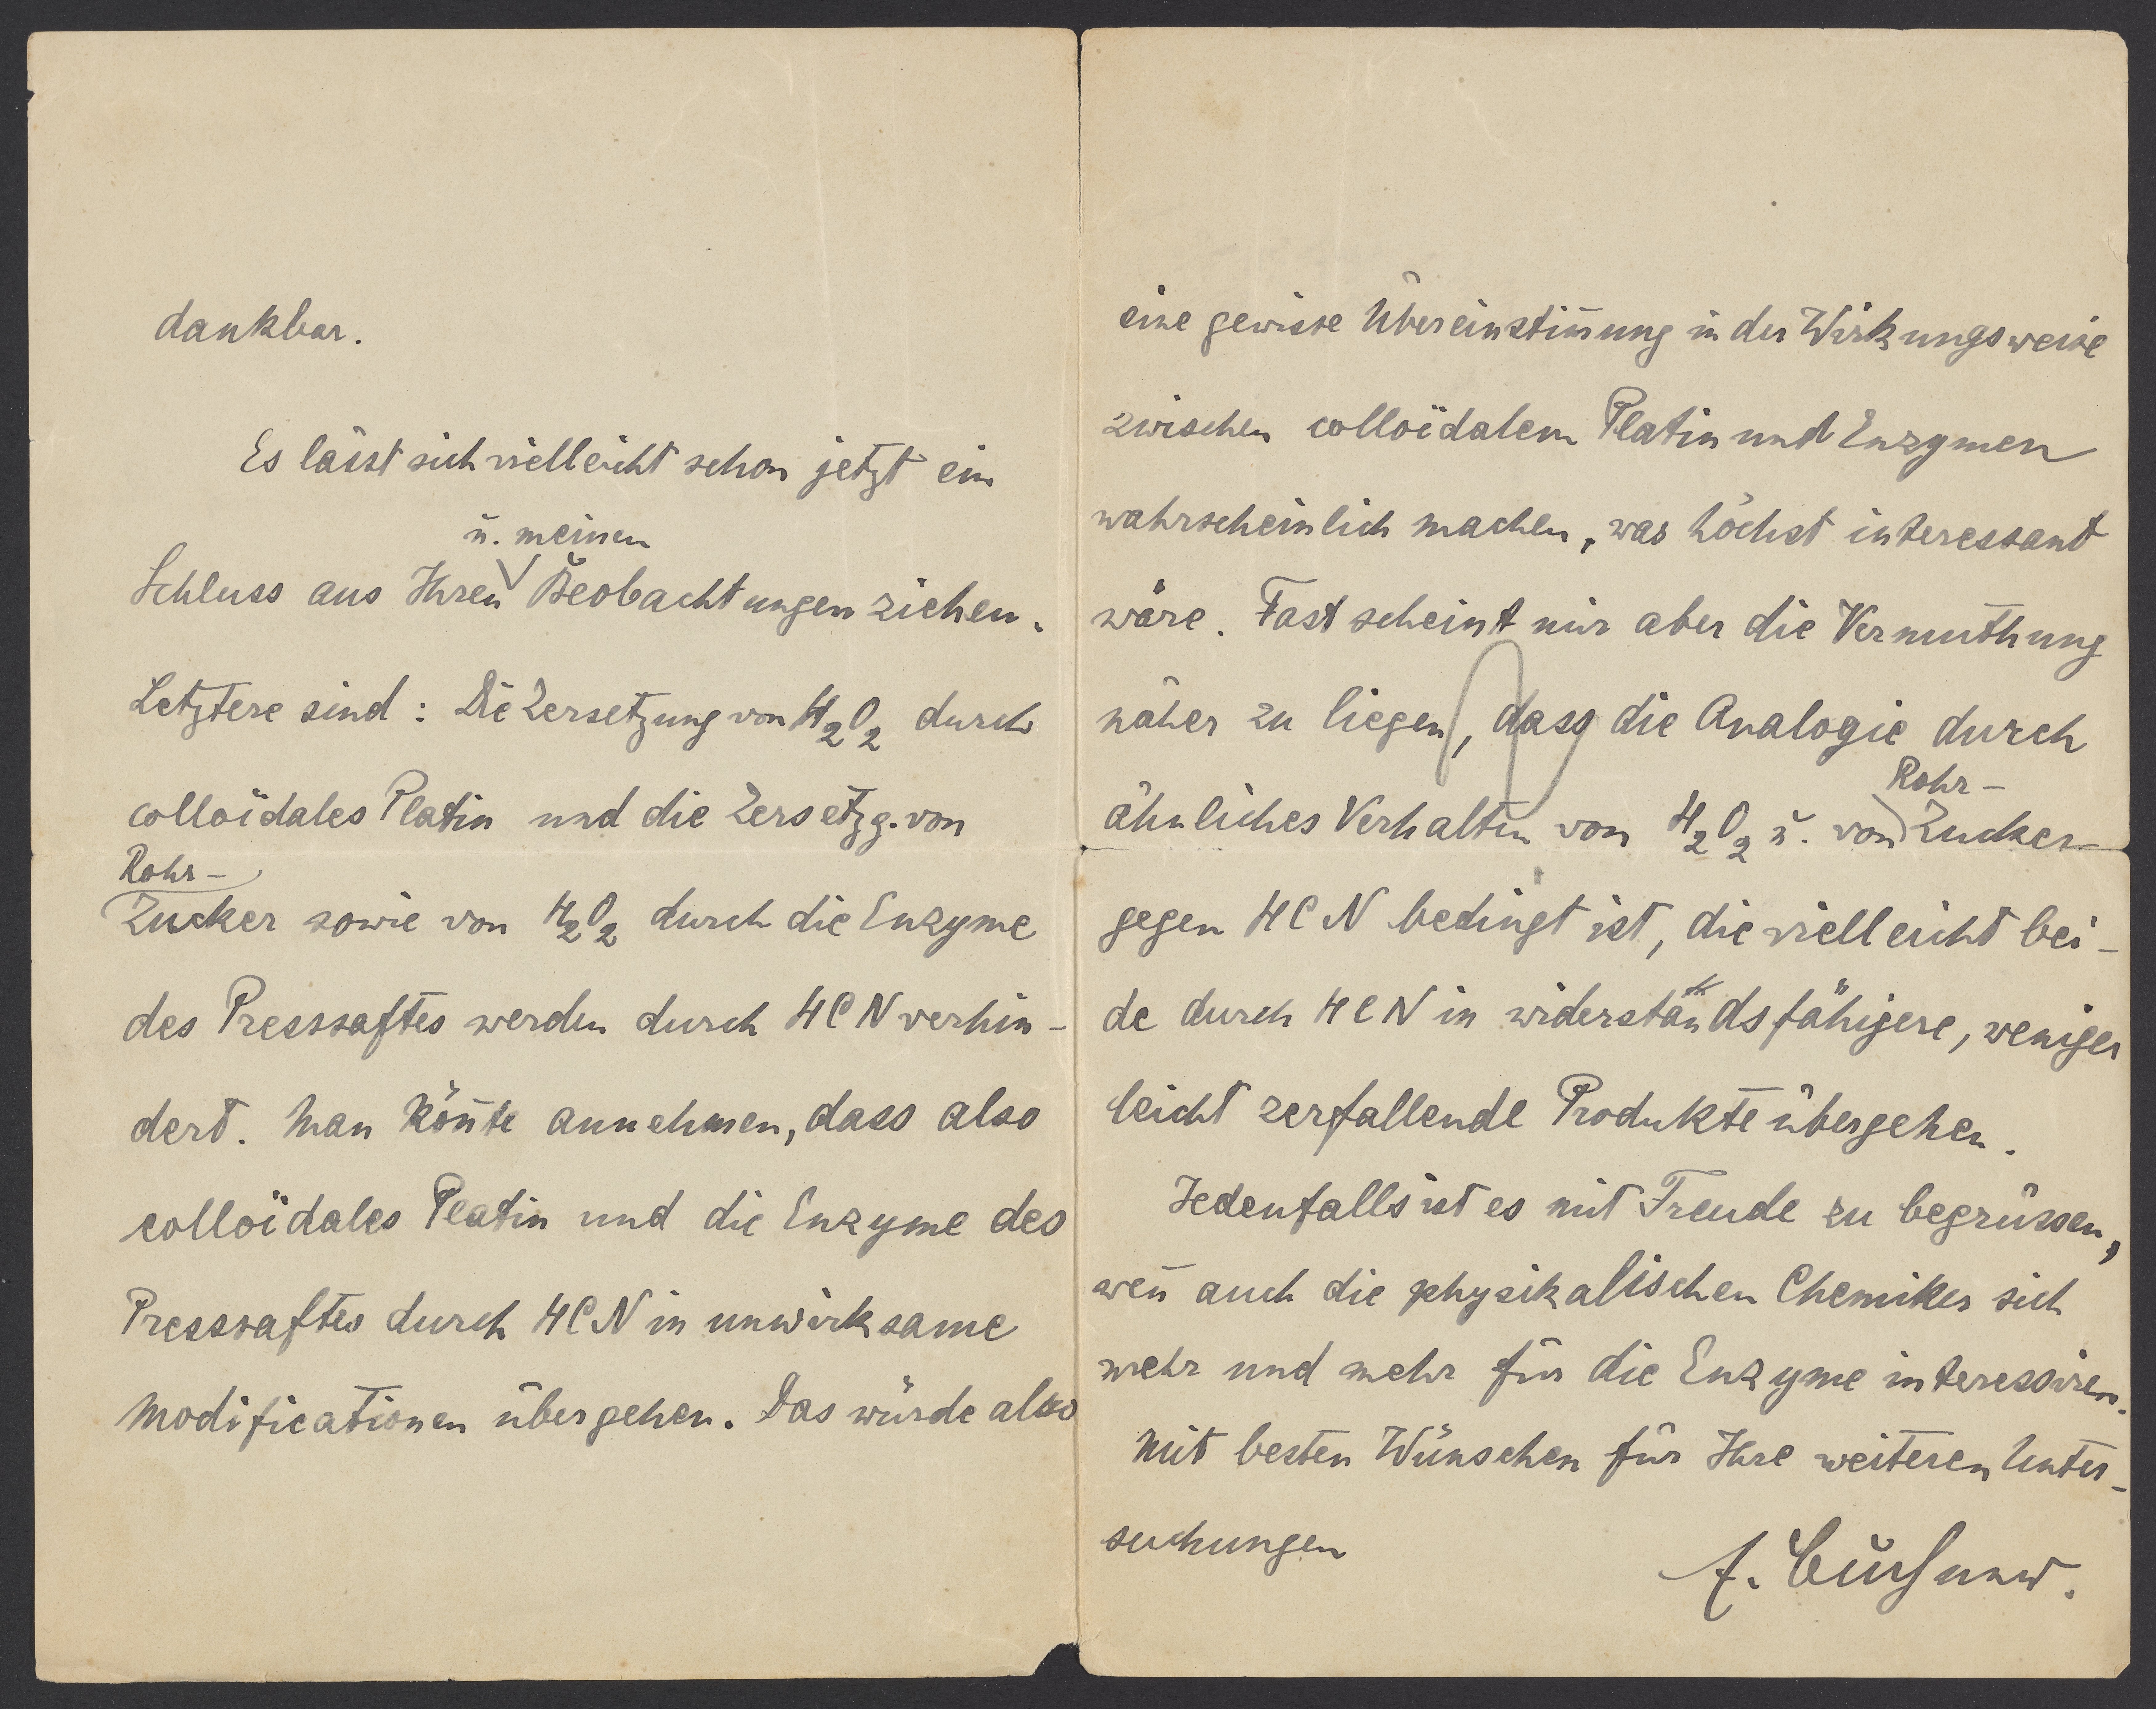 dankbar.
Es lässt sich vielleicht schon jetzt ein
u. meinen
Schluss aus Ihren Beobachtungen ziehen.
Letztere sind: Die Zersetzung von H2O2 durch
colloïdales Platin und die Zersetzg. von
Rohr-
Zucker sowie von H2O2 durch die Enzyme
des Pressaftes werden durch HCN verhin-
dert. Man kön̄te annehmen, dass also
colloïdales Platin und die Enzyme des
Pressaftes durch HCN in unwirksame
Modificationen übergehen. Das würde also
eine gewisse Übereinstim̄ung in der Wirkungsweise
zwischen colloïdalem Platin und Enzymen
wahrscheinlich machen, was höchst interessant
wäre. Fast scheint mir aber die Vermuthung
näher zu liegen, dass die Analogie durch
Rohr-
ähnliches Verhalten von H2O2 u. von Zucker
gegen HCN bedingt ist, die vielleicht bei-
de durch HCN in widerstandsfähigere, weniger
leicht zerfallende Produkte übergehen.
Jedenfalls ist es mit Freude zu begrüssen,
wen̄ auch die physikalischen Chemiker sich
mehr und mehr für die Enzyme interessiren.
Mit besten Wünschen für Ihre weiteren Unter-
suchungen